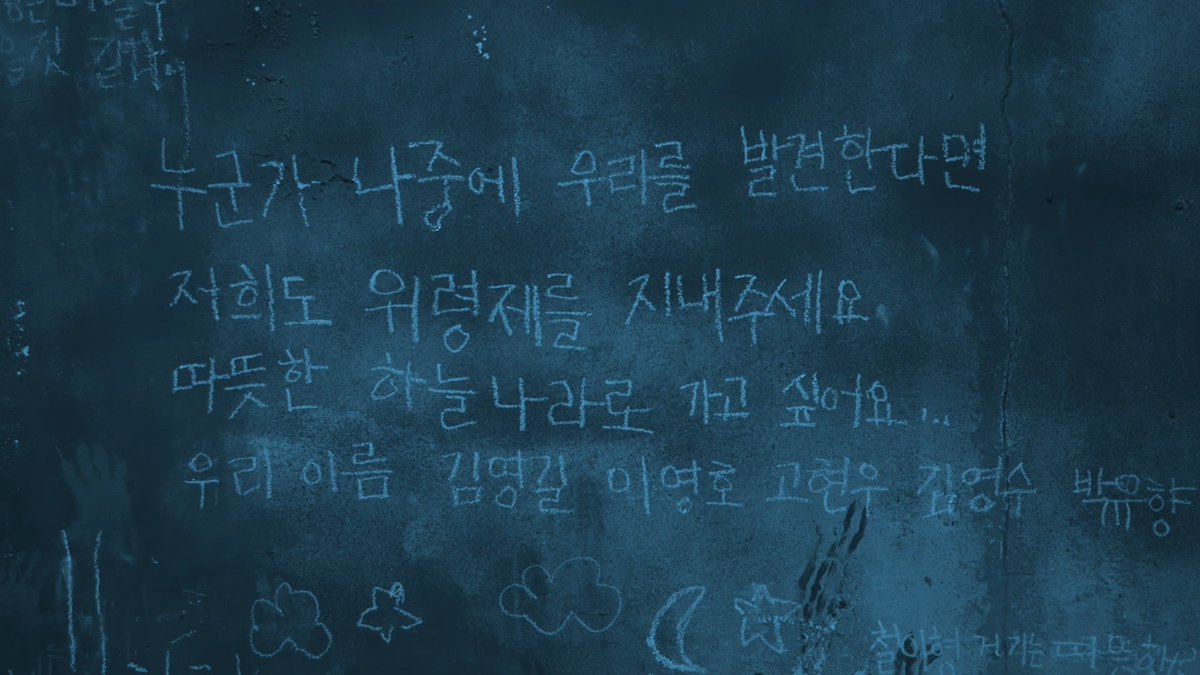 누군가 나중에 우리를 발견한다면
저희도 위령제를 지내주세요.
따뜻한 하늘나라로 가고 싶어요...
우리 이름 김영길 이영호 고현우 김영수 박유향
철이형 거기는 따뜻해?